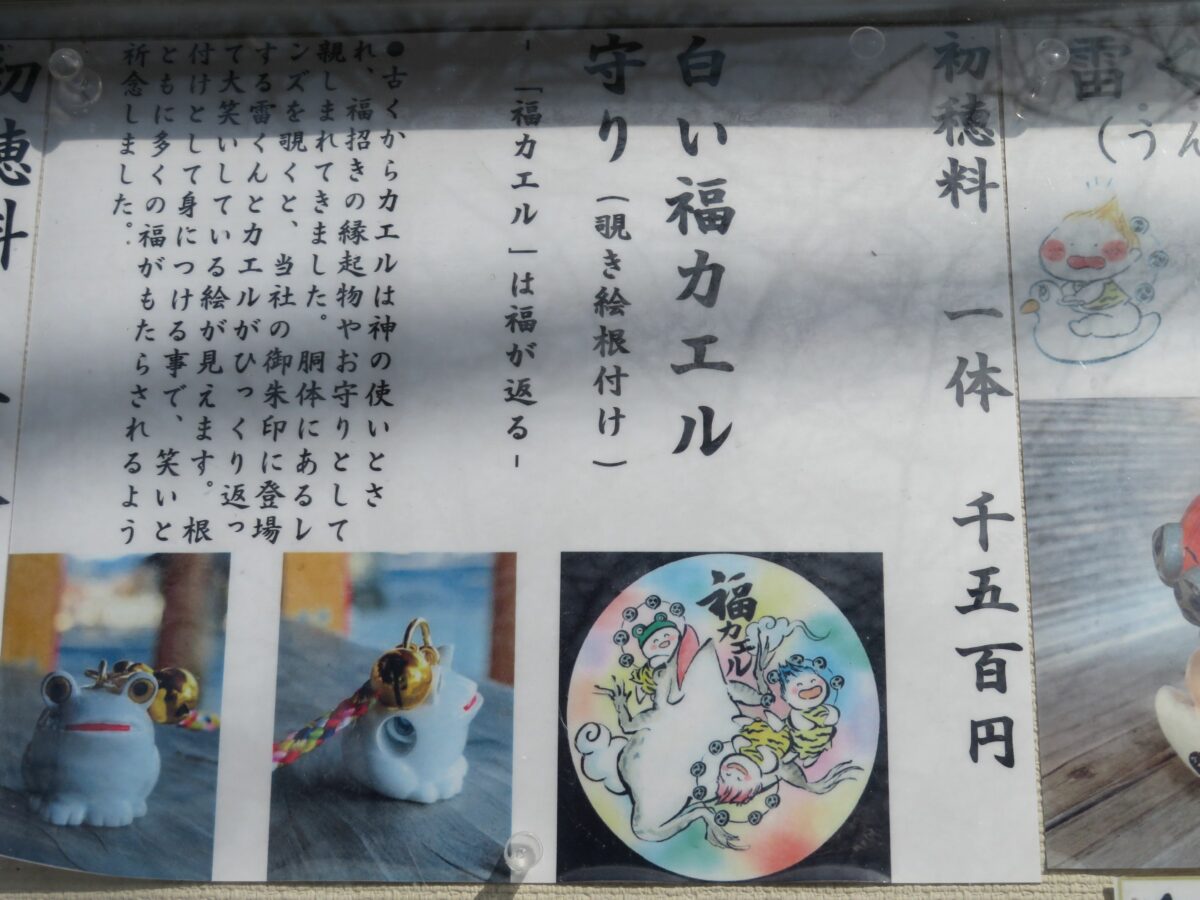 雷く
(うん
初穂料 一体 千五百円
白い福カエル
守り(覗き絵根付け)
-「福カエル」は福が返る-
●古くからカエルは神の使いとさ
れ、福招きの縁起物やお守りとして
親しまれてきました。胴体にあるレ
ンズを覗くと、当社の御朱印に登場
する雷くんとカエルがひっくり返っ
て大笑いしている絵が見えます。根
付けとして身につける事で、笑いと
ともに多くの福がもたらされるよう
祈念しました。
福カエル
初穂料